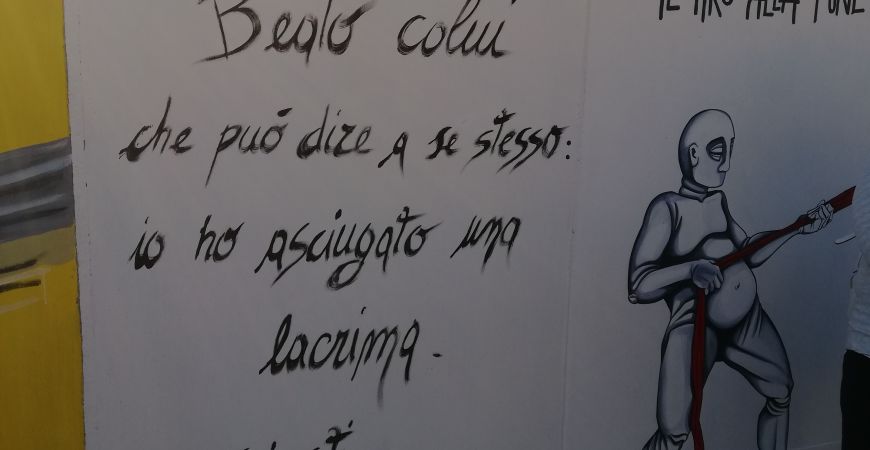 Beato colui
che può dire a se stesso:
io ho asciugato una
lacrima.
IL TIRO ALLA FUNE